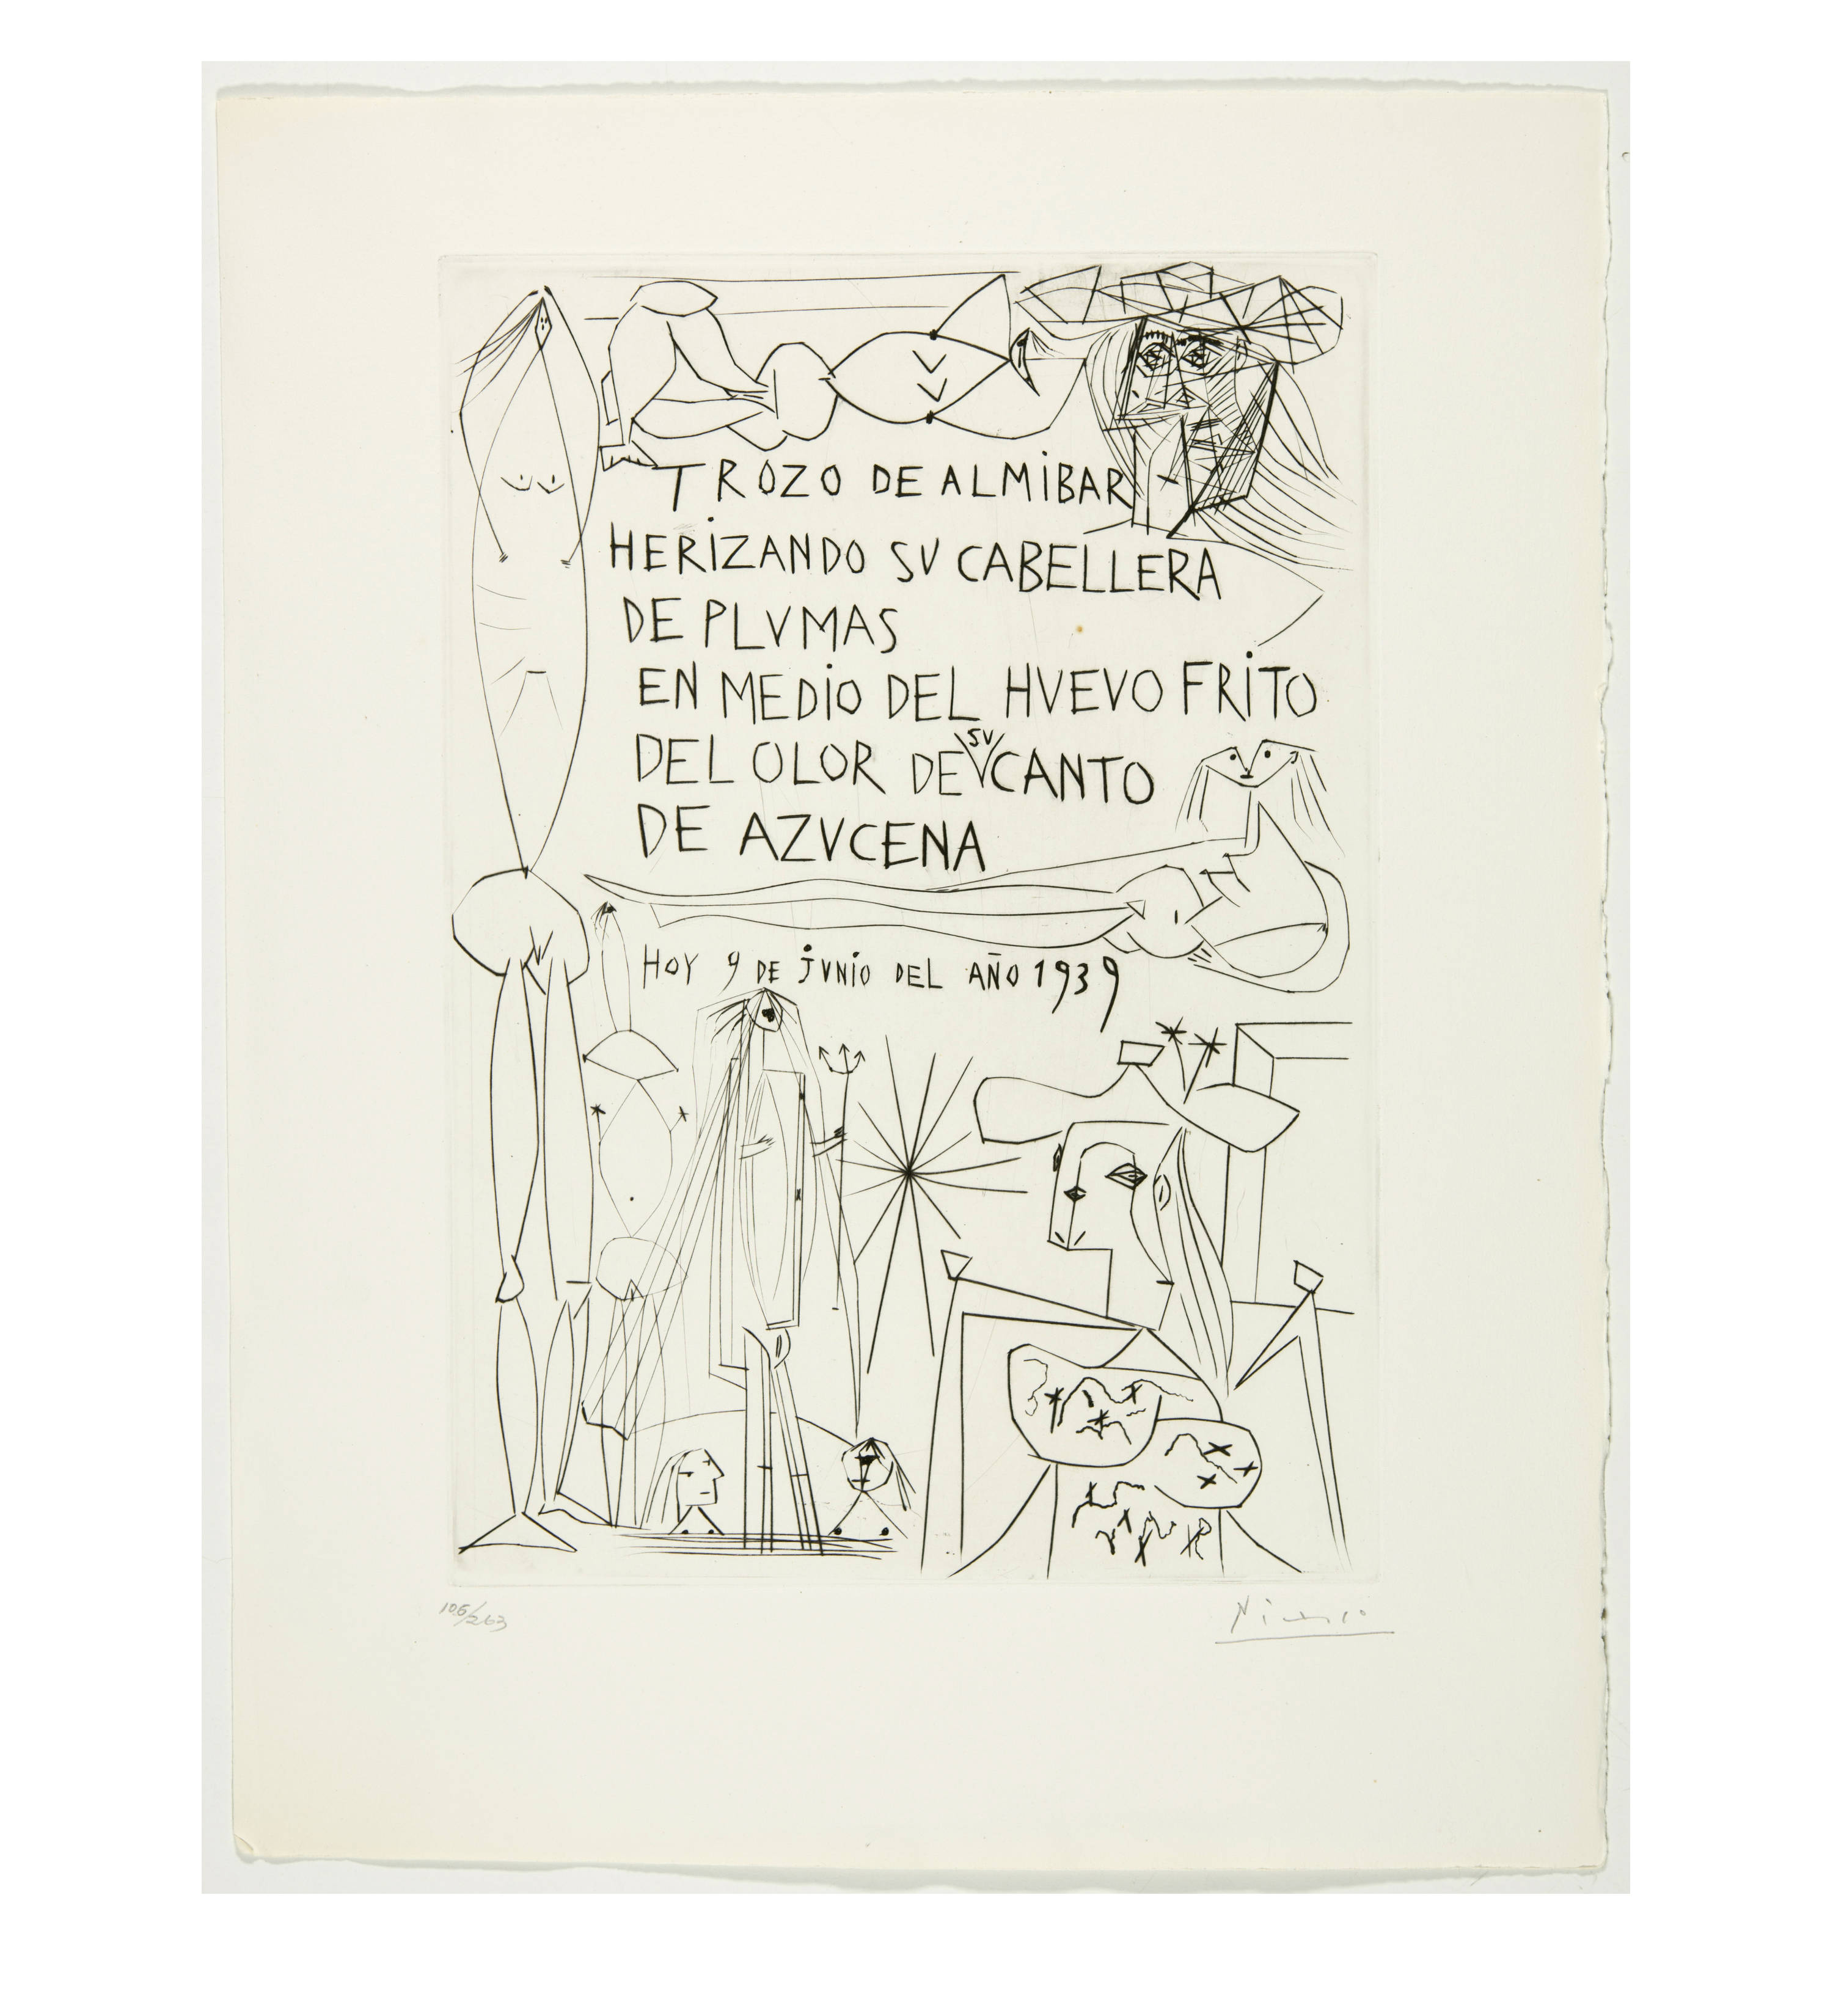 TROZO DE ALMiBAR
HERiZANDO SV CABELLERA
DE PLVMAS
EN MEDiO DEL HVEVO FRiTO
DEL OLOR DE SV CANTO
DE AZVCENA
HOY 9 DE jVNiO DEL AÑO 1939
106/263
Picasso